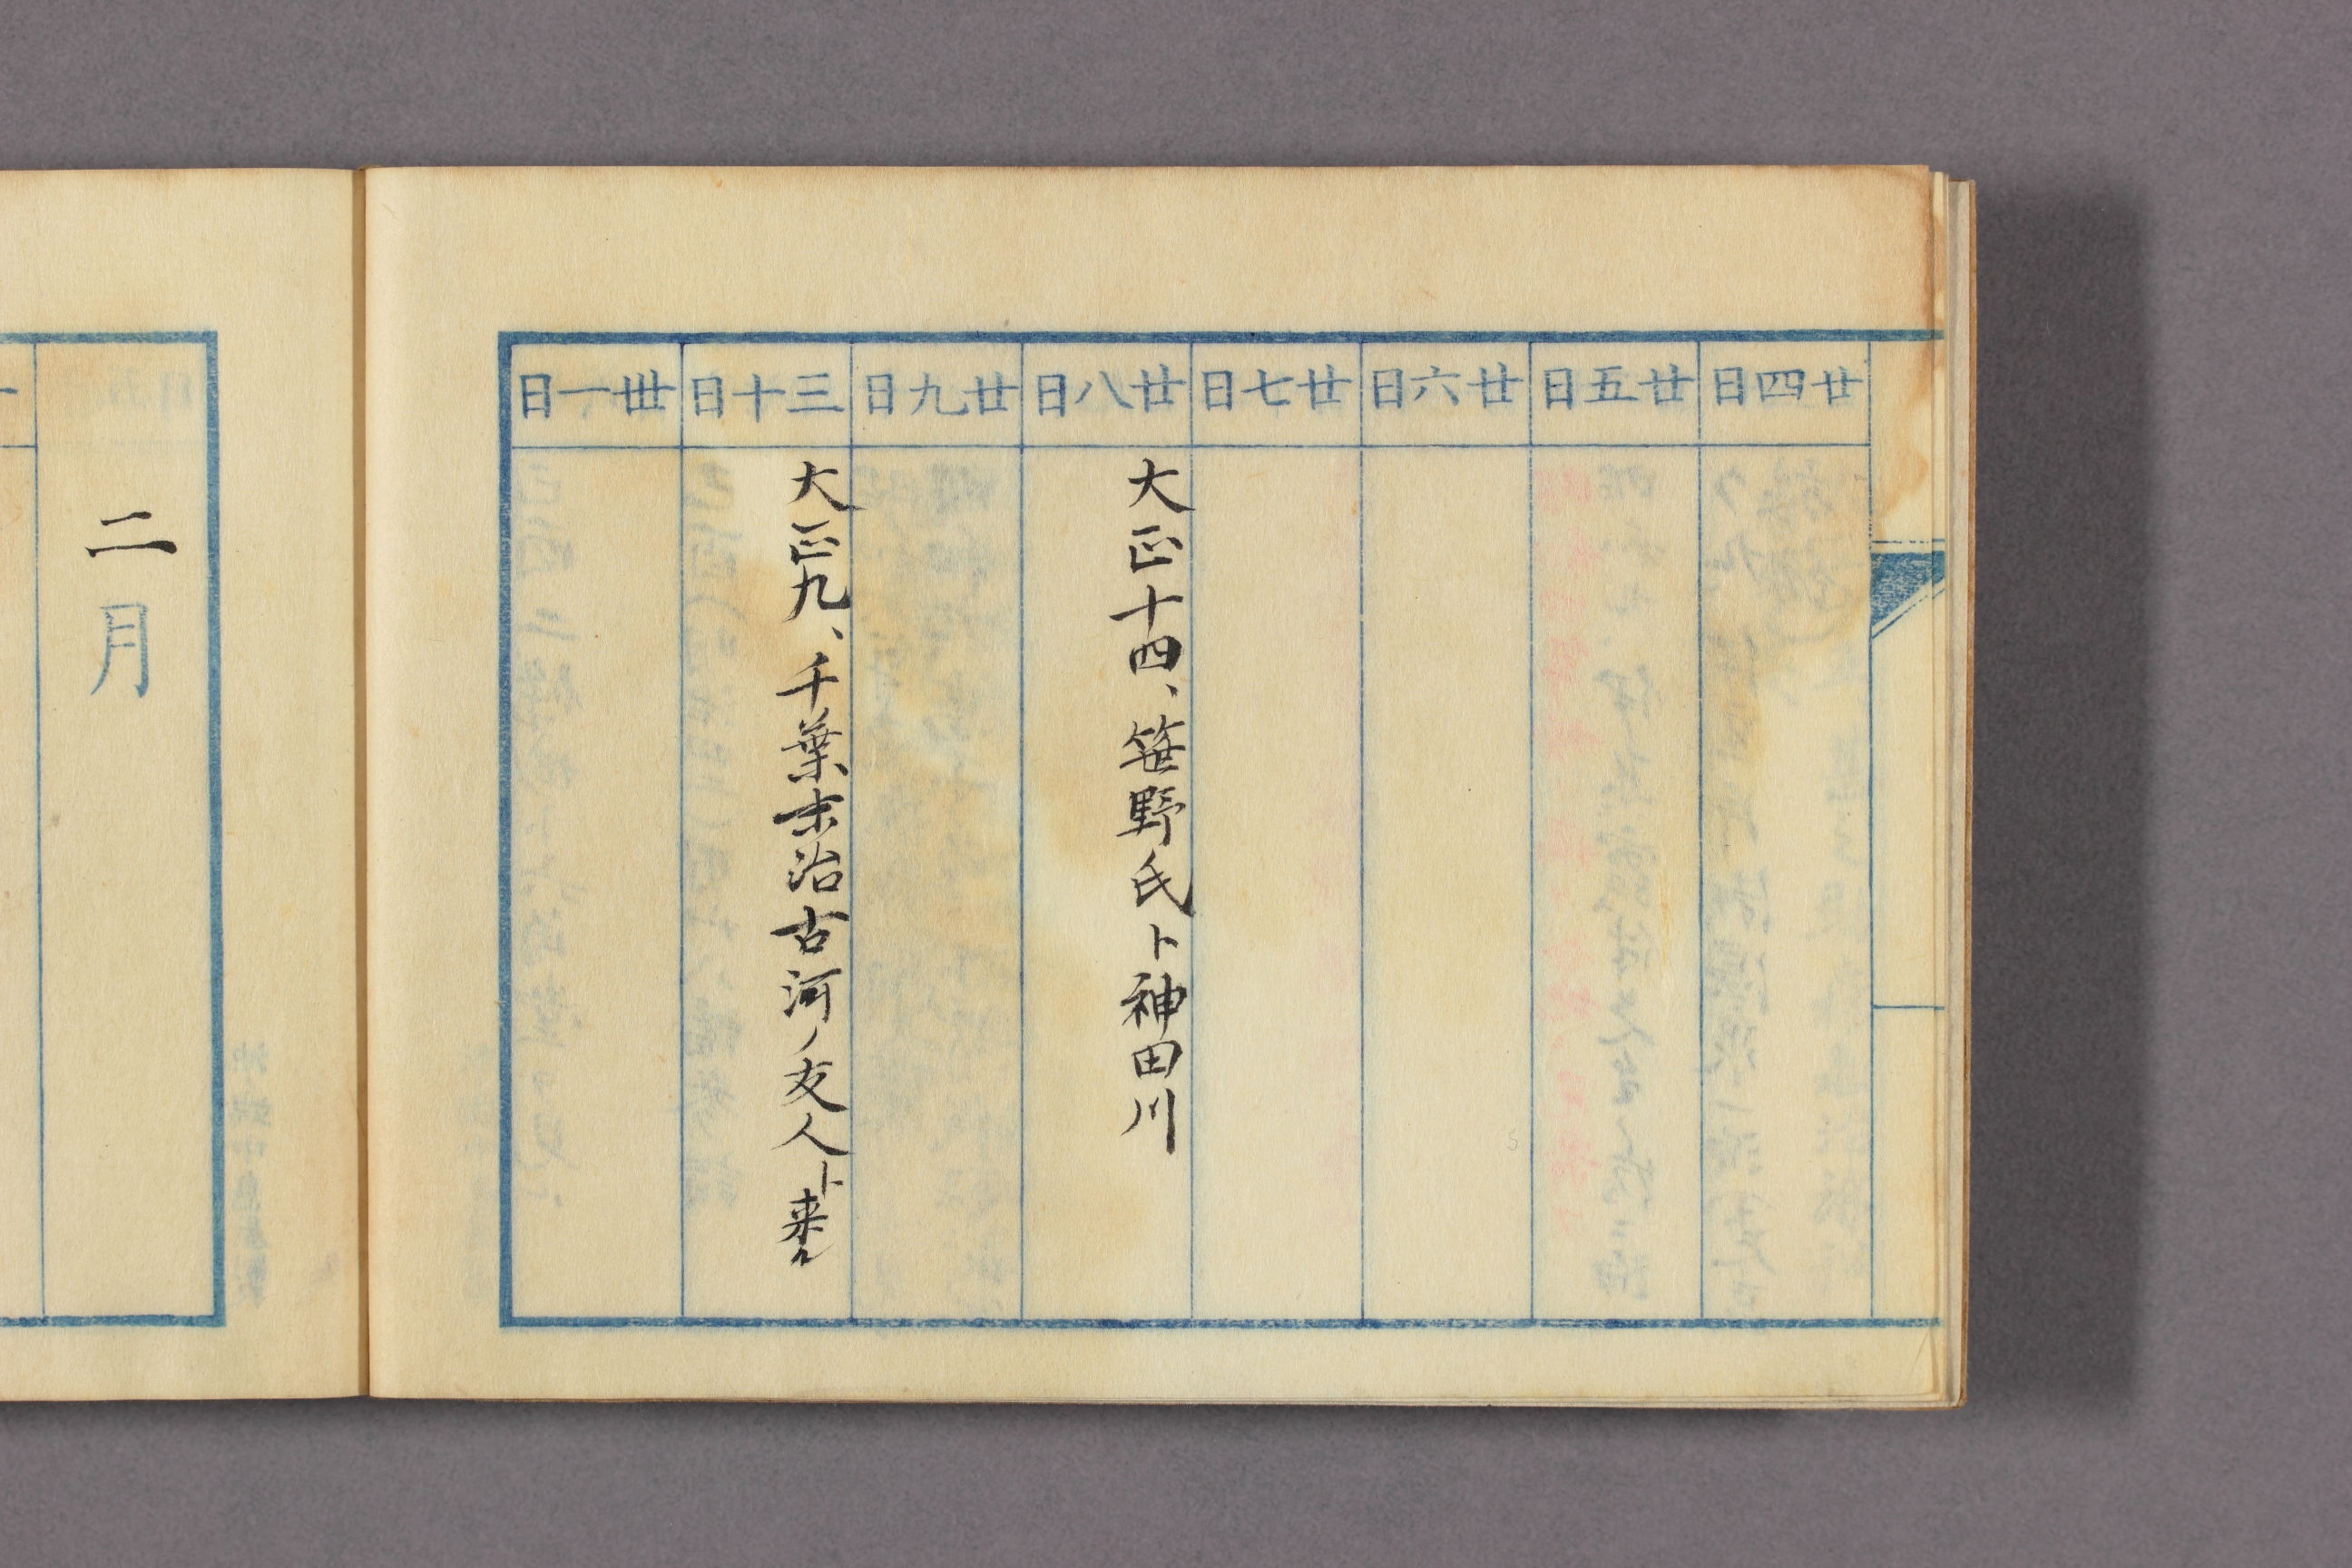 廿四日
廿五日
廿六日
廿七日
廿八日
大正十四、笹野氏ト神田川
廿九日
三十日
大正九、千葉末治古河ノ友人ト来ル
丗一日
二月